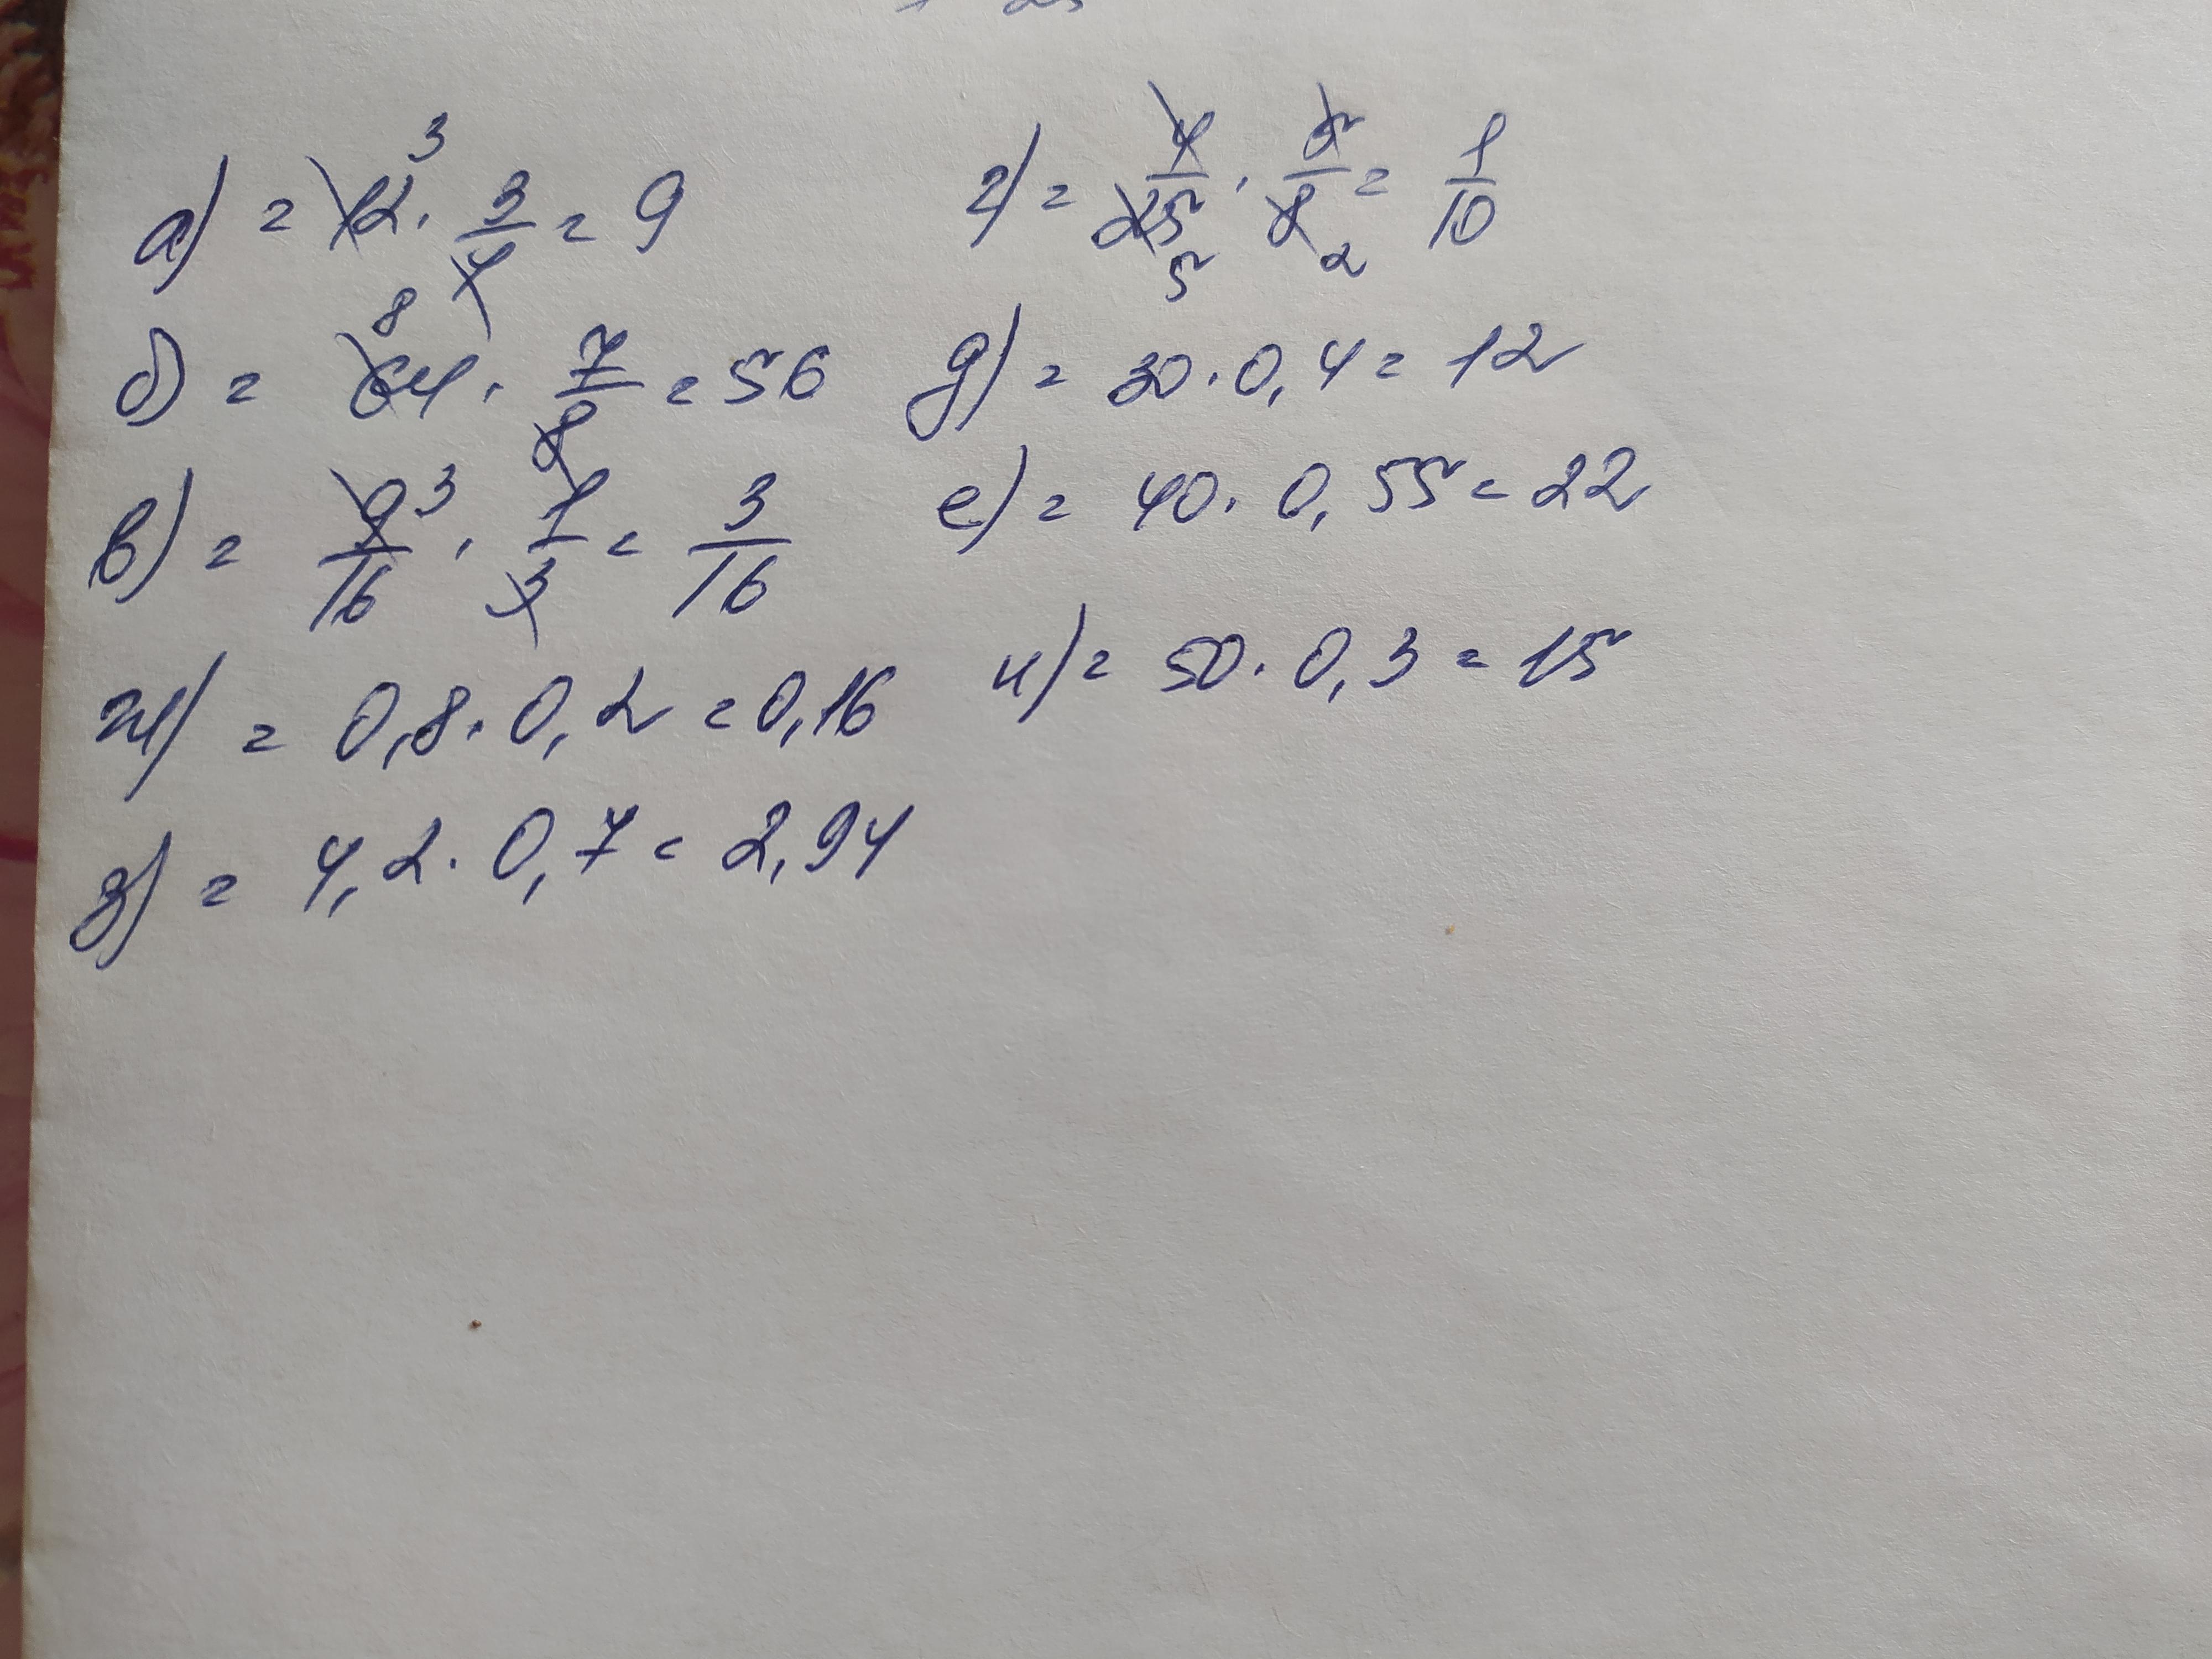 а) = 12 3 · 3/4 = 9
г) = 4/25 5 · 5/8 2 = 1/10
б) = 64 8 · 7/8 = 56
д) = 30 · 0,4 = 12
в) = 9 3/16 · 1/3 = 3/16
е) = 40 · 0,55 = 22
ж) = 0,8 · 0,2 = 0,16
и) = 50 · 0,3 = 15
з) = 4,2 · 0,7 = 2,94